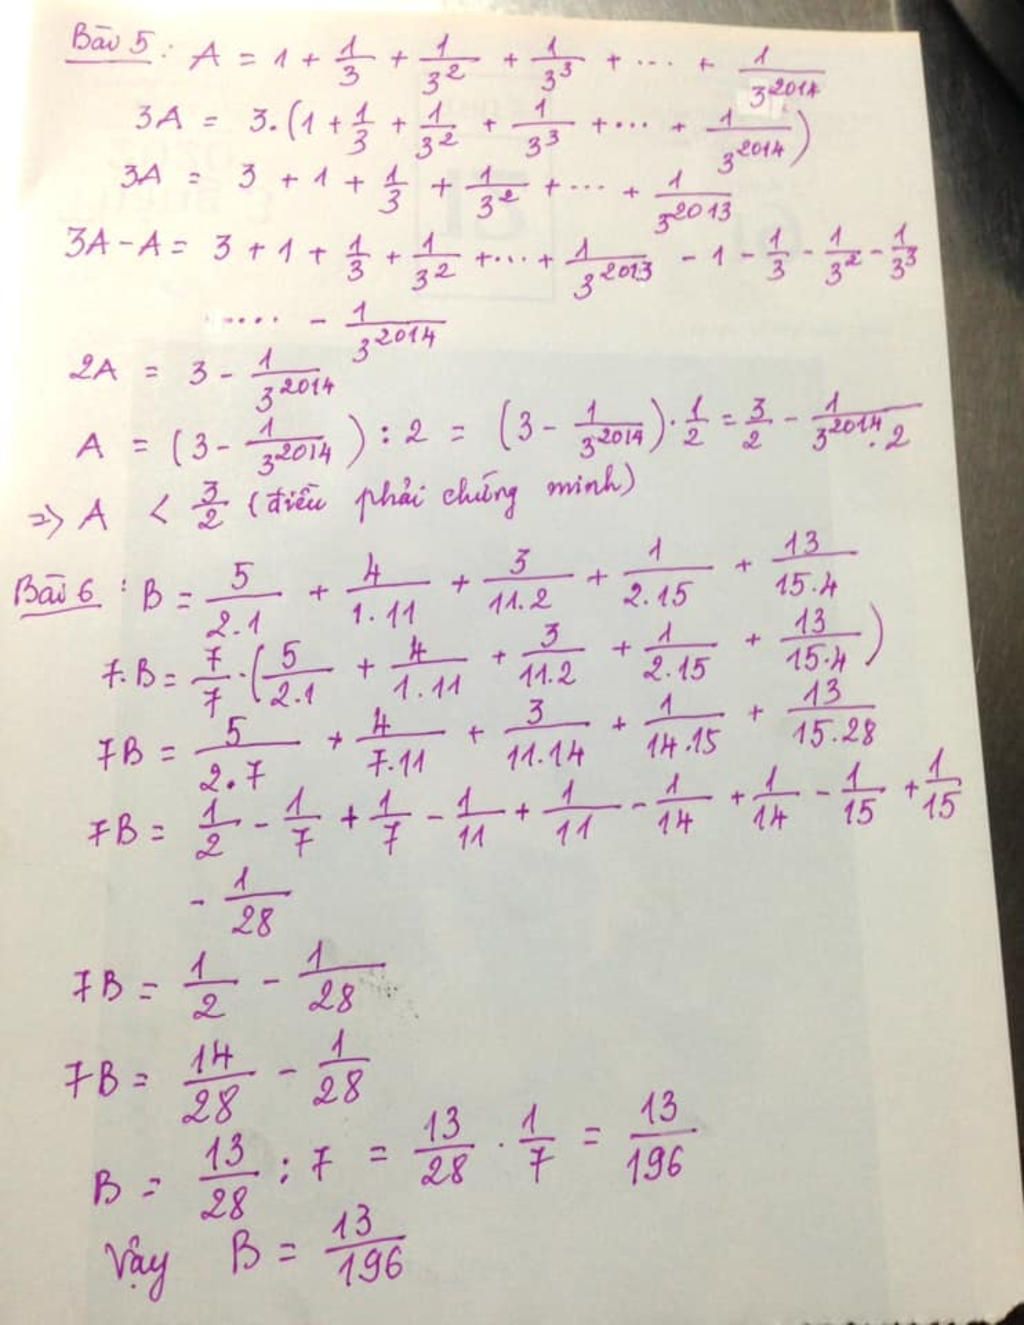 Bài 5: A = 1 + 1/3 + 1/3^2 + 1/3^3 + ... + 1/3^2014
3A = 3.(1 + 1/3 + 1/3^2 + 1/3^3 + ... + 1/3^2014)
3A = 3 + 1 + 1/3 + 1/3^2 + ... + 1/3^2013
3A - A = 3 + 1 + 1/3 + 1/3^2 + ... + 1/3^2013 - 1 - 1/3 - 1/3^2 - 1/3^3
.... - 1/3^2014
2A = 3 - 1/3^2014
A = (3 - 1/3^2014) : 2 = (3 - 1/3^2014) . 1/2 = 3/2 - 1/3^2014.2
=> A < 3/2 (điều phải chứng minh)
Bài 6: B = 5/2.1 + 4/1.11 + 3/11.2 + 1/2.15 + 13/15.4
7.B = 7/7 . (5/2.1 + 4/1.11 + 3/11.2 + 1/2.15 + 13/15.4)
7B = 5/2.7 + 4/7.11 + 3/11.14 + 1/14.15 + 13/15.28
7B = 1/2 - 1/7 + 1/7 - 1/11 + 1/11 - 1/14 + 1/14 - 1/15 + 1/15
- 1/28
7B = 1/2 - 1/28
7B = 14/28 - 1/28
B = 13/28 : 7 = 13/28 . 1/7 = 13/196
Vậy B = 13/196